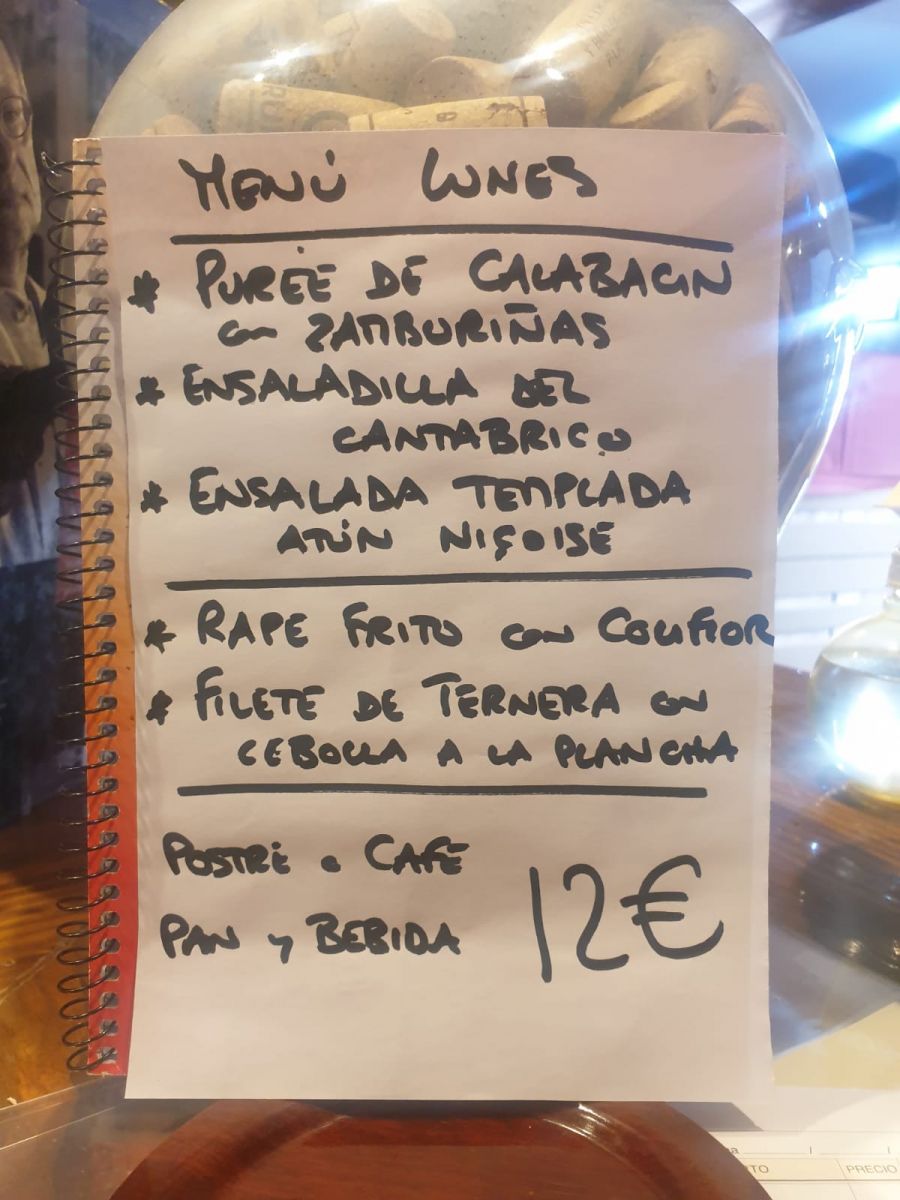 MENÚ LUNES
* PURÉE DE CALABACIN
con ZAMBURIÑAS
* ENSALADILLA DEL
CANTABRICO
* ENSALADA TEMPLADA
ATÚN NIÇOISE
* RAPE FRITO con COLIFLOR
* FILETE DE TERNERA con
CEBOLLA A LA PLANCHA
POSTRE o CAFE
PAN y BEBIDA
12€
PRECIO